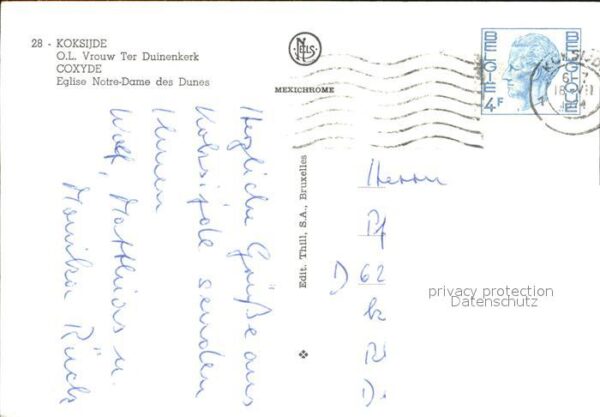 28 - KOKSIJDE
O.L. Vrouw Ter Duinenkerk
COXYDE
Eglise Notre-Dame des Dunes
NELS
MEXICHROME
BELGIE
4F
BELGIQUE
Herzliche Grüße aus
Koksijde senden
Ihnen
Wolf, Matthias u.
Monika Rücks
Edit. Thill, S.A., Bruxelles
Herrn
Pf
D 62
privacy protection
Datenschutz